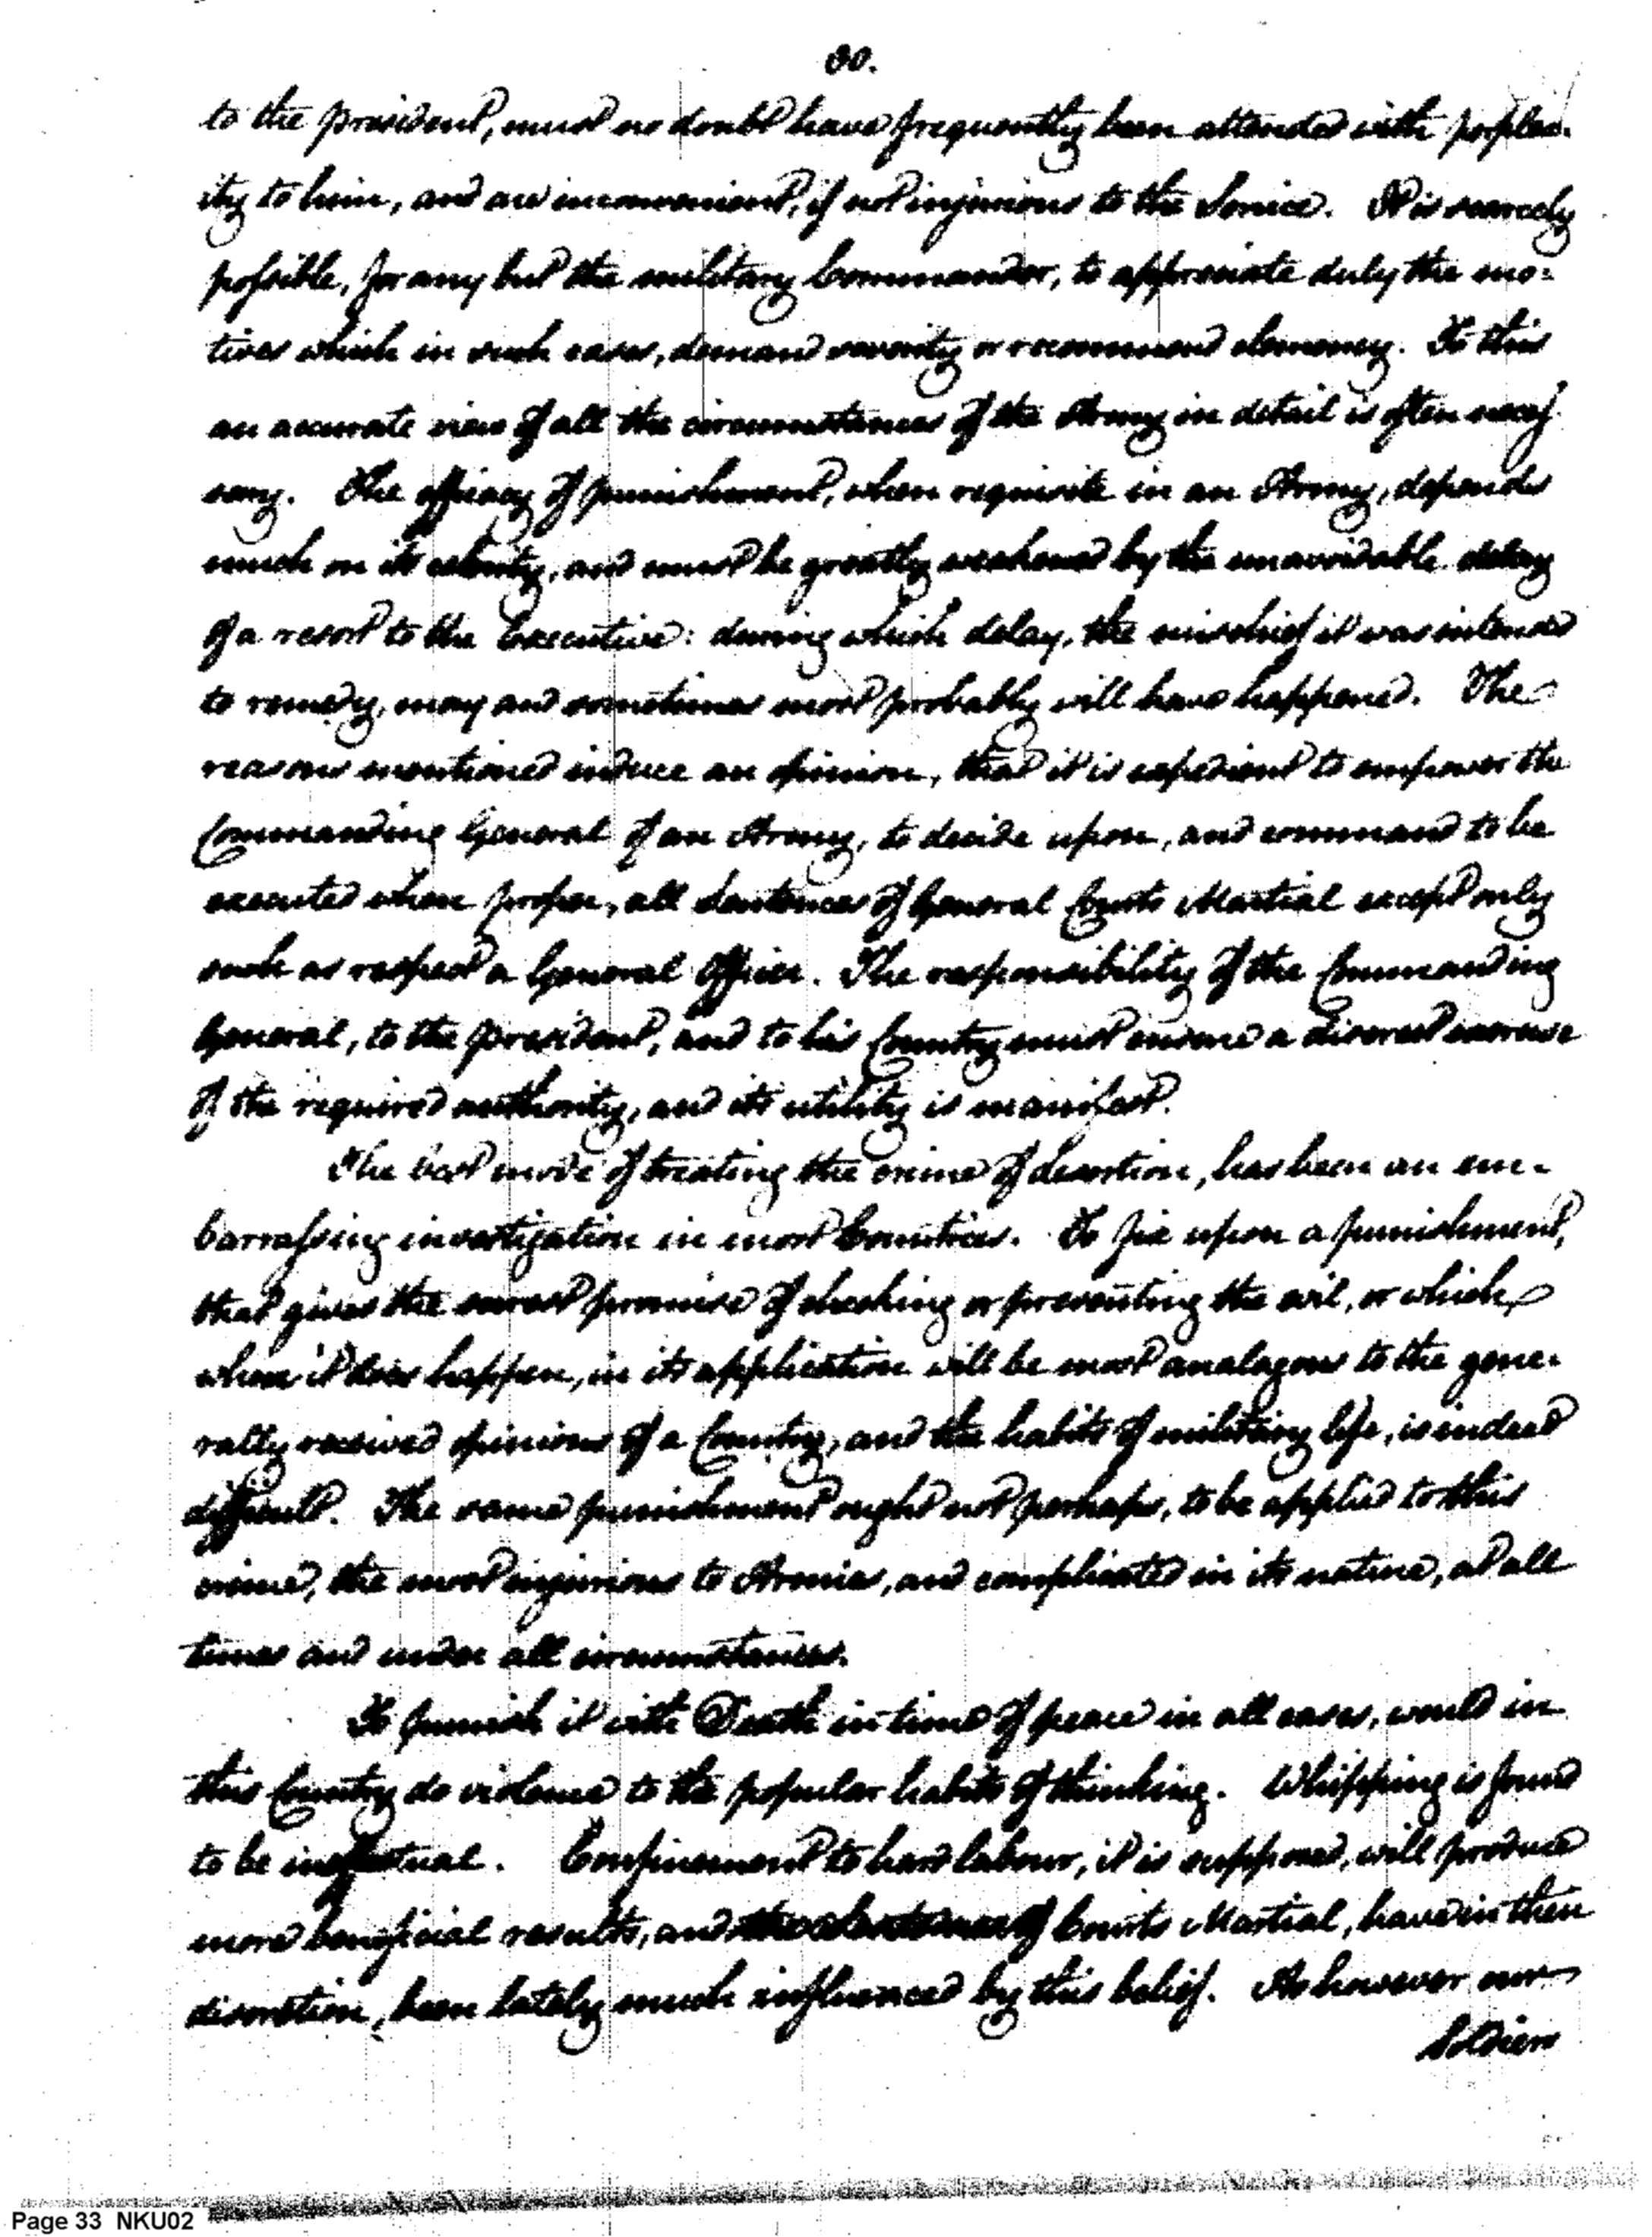 30.
to the president, must no doubt have frequently been attended with perplex-
ity to him, and are inconvenient, if not injurious to the Service. It is scarcely
possible, for any but the military Commander, to appreciate duly the mo=
tives which in such cases, demand severity or recommend clemency. To this
an accurate view of all the circumstances of the Army in detail is often neces-
sary. The efficacy of punishment, when requisite in an Army, depends
much on its celerity, and must be greatly weakened by the unavoidable delay
of a resort to the Executive: during which delay, the mischief it was intended
to remedy, may and sometimes most probably will have happened. The
reasons mentioned induce an opinion, that it is expedient to empower the
Commanding General of an Army, to decide upon, and command to be
executed when proper, all Sentences of General Courts Martial except only
such as respect a General Officer. The responsibility of the Commanding
General, to the president, and to his Country must ensure a discreet exercise
of the required authority, and its utility is manifest.
The best mode of treating the crime of desertion, has been an em-
barrassing investigation in most Countries. To fix upon a punishment,
that gives the surest promise of checking or preventing the evil, or which
when it does happen, in its application will be most analogous to the gene-
rally received opinions of a Country, and the habits of military life, is indeed
difficult. The same punishment ought not perhaps, to be applied to this
crime, the most injurious to Armies, and complicated in its nature, at all
times and under all circumstances.
To punish it with Death in time of peace in all cases, would in
this Country do violence to the popular habits of thinking. Whipping is found
to be ineffectual. Confinement to hard labour, it is supposed, will produce
more beneficial results, and the Sentences of Courts Martial, have in their
discretion, been lately much influenced by this belief. As however our
Soldiers
Page 33 NKU02